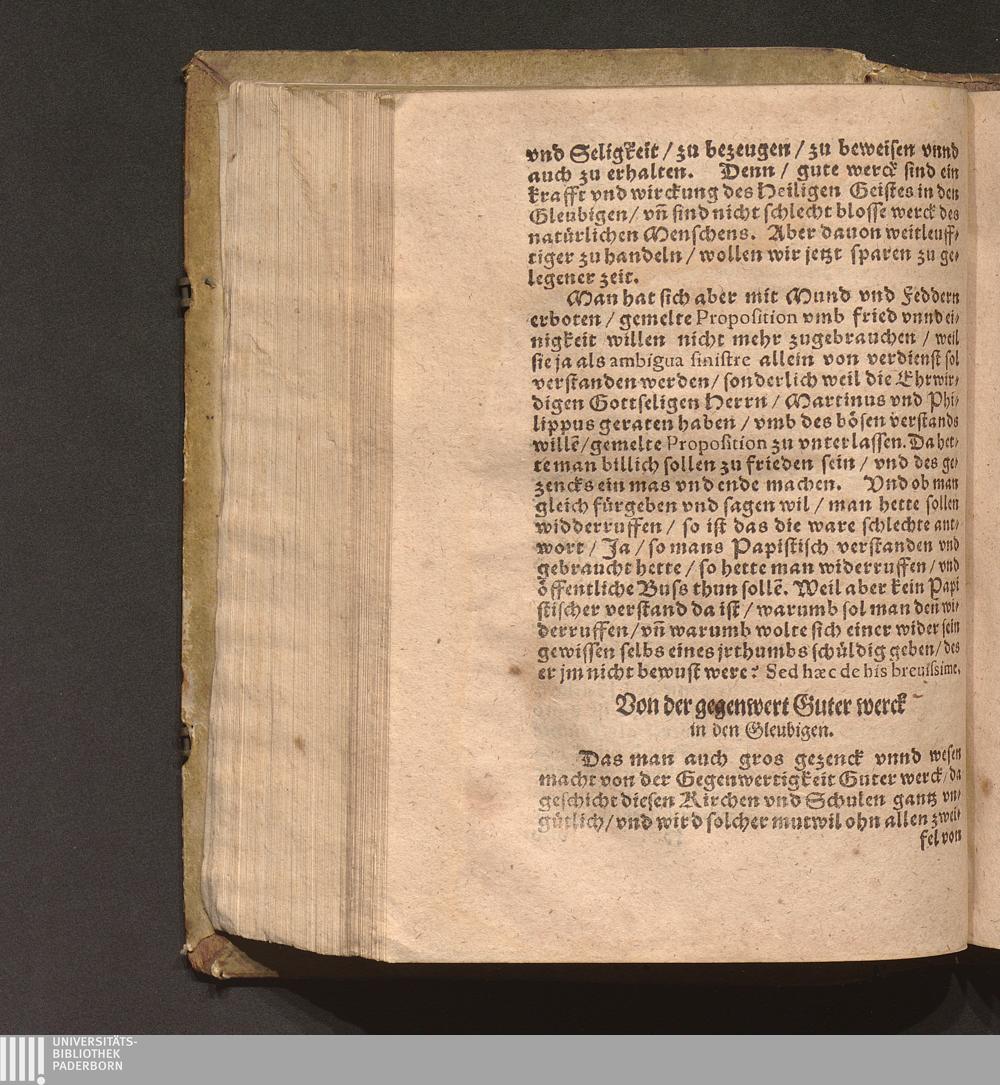 vnd Seligkeit / zu bezeugen / zu beweisen vnnd
auch zu erhalten. Denn / gute werck sind ein
krafft vnd wirckung des Heiligen Geistes in den
Gleubigen / vn̄ sind nicht schlecht blosse werck des
natürlichen Menschens. Aber dauon weitleuff⸗
tiger zu handeln / wollen wir jetzt sparen zu ge⸗
legener zeit.
Man hat sich aber mit Mund vnd Feddern
erboten / gemelte Proposition vmb fried vnnd ei⸗
nigkeit willen nicht mehr zugebrauchen / weil
sie ja als ambigua sinistre allein von verdienst sol
verstanden werden / sonderlich weil die Ehrwir⸗
digen Gottseligen Herrn / Martinus vnd Phi⸗
lippus geraten haben / vmb des bösen verstands
willē / gemelte Proposition zu vnterlassen. Da het⸗
te man billich sollen zu frieden sein / vnd des ge⸗
zencks ein mas vnd ende machen. Vnd ob man
gleich fürgeben vnd sagen wil / man hette sollen
widderruffen / so ist das die ware schlechte ant⸗
wort / Ja / so mans Papistisch verstanden vnd
gebraucht hette / so hette man widerruffen / vnd
öffentliche Buss thun sollē. Weil aber kein Papi
stischer verstand da ist / warumb sol man den wi⸗
derruffen / vn̄ warumb wolte sich einer wider sein
gewissen selbs eines jrthumbs schüldig geben / des
er jm nicht bewust were? Sed hæc de his breuissime.
Von der gegenwert Guter werck
in den Gleubigen.
Das man auch gros gezenck vnnd wesen
macht von der Gegenwertigkeit Guter werck / da
geschicht diesen Kirchen vnd Schulen gantz vn⸗
gütlich / vnd wird solcher mutwil ohn allen zwei⸗
fel von
UNIVERSITÄTS-
BIBLIOTHEK
PADERBORN